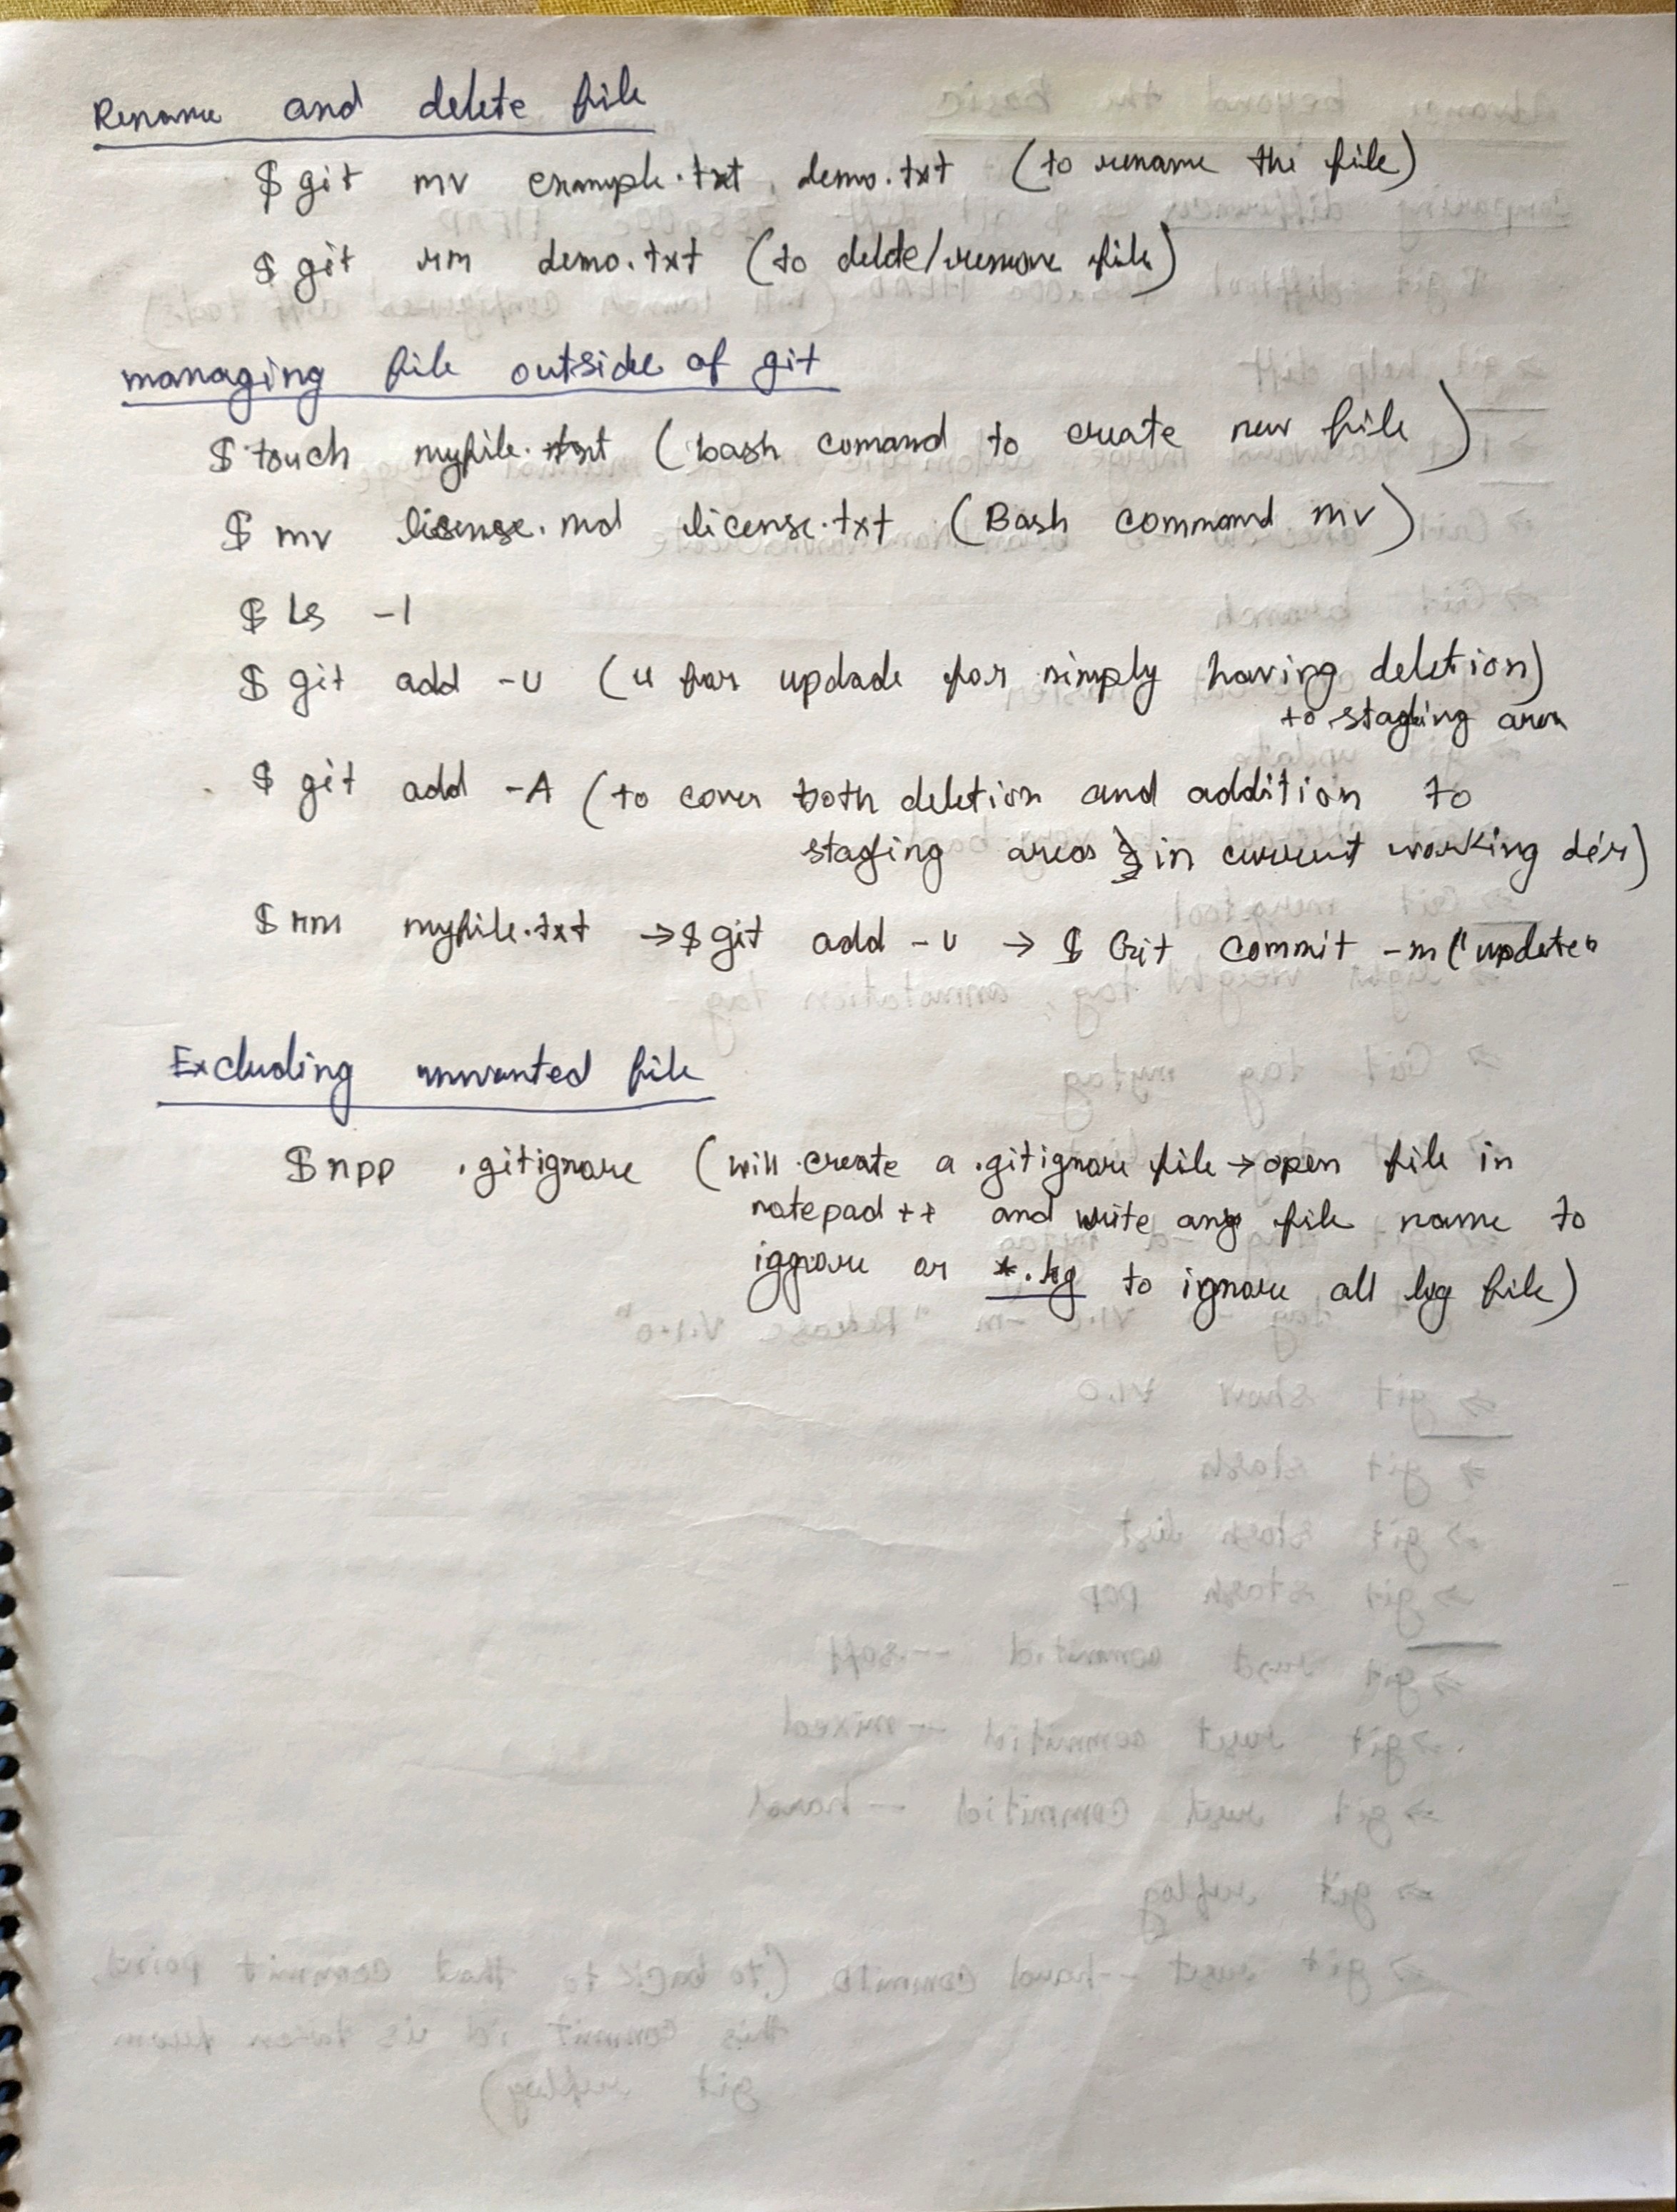 Rename and delete file
$ git mv example.txt demo.txt (to rename the file)
$ git rm demo.txt (to delete/remove file)
managing file outside of git
$ touch myfile.txt (bash comand to create new file)
$ mv license.md license.txt (Bash command mv)
$ ls -l
$ git add -u (u for updade for simply having deletion)
to staging area
$ git add -A (to cover both deletion and addition to
staging areas in current working dir)
$ rm myfile.txt → $ git add -u → $ Git commit -m ("update"
Excluding unwanted file
$ npp .gitignore (will create a .gitignore file → open file in
notepad++ and write any file name to
iggnore or *.log to ignore all log file)